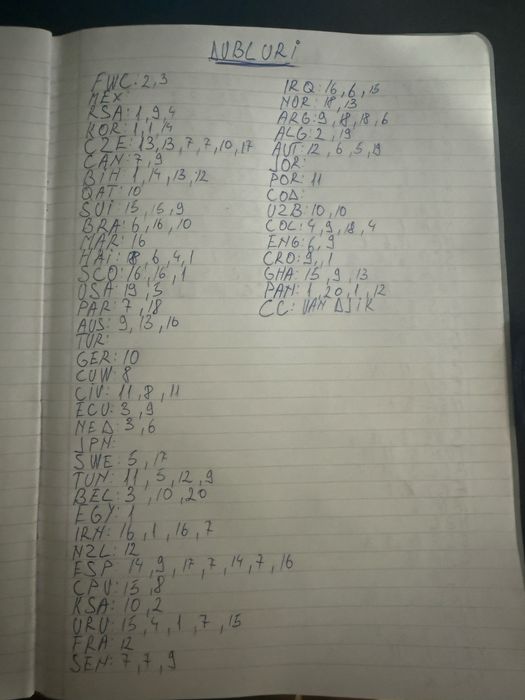 DUBLURI
FWC: 2,3
MEX:
RSA: 1, 9, 4
KOR: 1, 1, 14
CZE: 13, 13, 7, 7, 10, 17
CAN: 7, 9
BIH: 1, 14, 13, 12
QAT: 10
SUI: 15, 15, 9
BRA: 6, 16, 10
MAR: 16
HAI: 8, 6, 4, 1
SCO: 16, 16, 1
USA: 19, 5
PAR: 7, 18
AUS: 9, 13, 16
TUR:
GER: 10
CUW: 8
CIV: 11, 8, 11
ECU: 3, 9
NED: 3, 6
JPN:
SWE: 5, 17
TUN: 11, 5, 12, 9
BEL: 3, 10, 20
EGY: 1
IRN: 16, 1, 16, 7
NZL: 12
ESP: 14, 9, 17, 7, 14, 7, 16
CPV: 15, 8
KSA: 10, 2
URU: 15, 4, 1, 7, 15
FRA: 12
SEN: 7, 7, 9
IRQ: 16, 6, 15
NOR: 18, 13
ARG: 9, 18, 18, 6
ALG: 2, 19
AUT: 12, 6, 5, 19
JOR:
POR: 11
COD:
UZB: 10, 10
COL: 4, 9, 18, 4
ENG: 6, 9
CRO: 9, 1
GHA: 15, 9, 13
PAN: 1, 20, 1, 12
CC: VAN DJIK